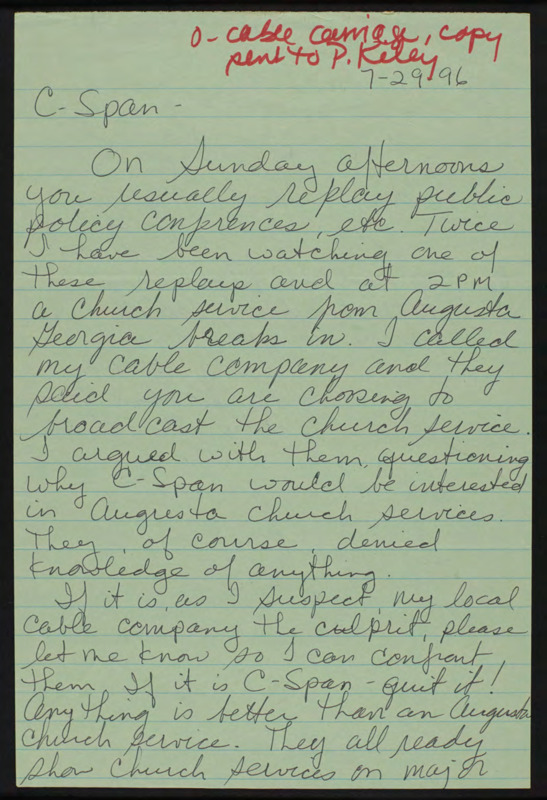 0 - cable carriage, copy
sent to P. Kiley
7-29-96
C-Span -
On Sunday afternoons
you usually replay public
policy confrences, etc. Twice
I have been watching one of
these replays and at 2 PM
a church service from Augusta
Georgia breaks in. I called
my cable company and they
said you are choosing to
broadcast the church service.
I argued with them, questioning
why C-Span would be interested
in Augusta church services.
They, of course, denied
knowledge of anything.
If it is, as I suspect, my local
cable company the culprit, please
let me know so I can confront
them. If it is C-Span - quit it!
Anything is better than an Augusta
church service. They all ready
show church services on major